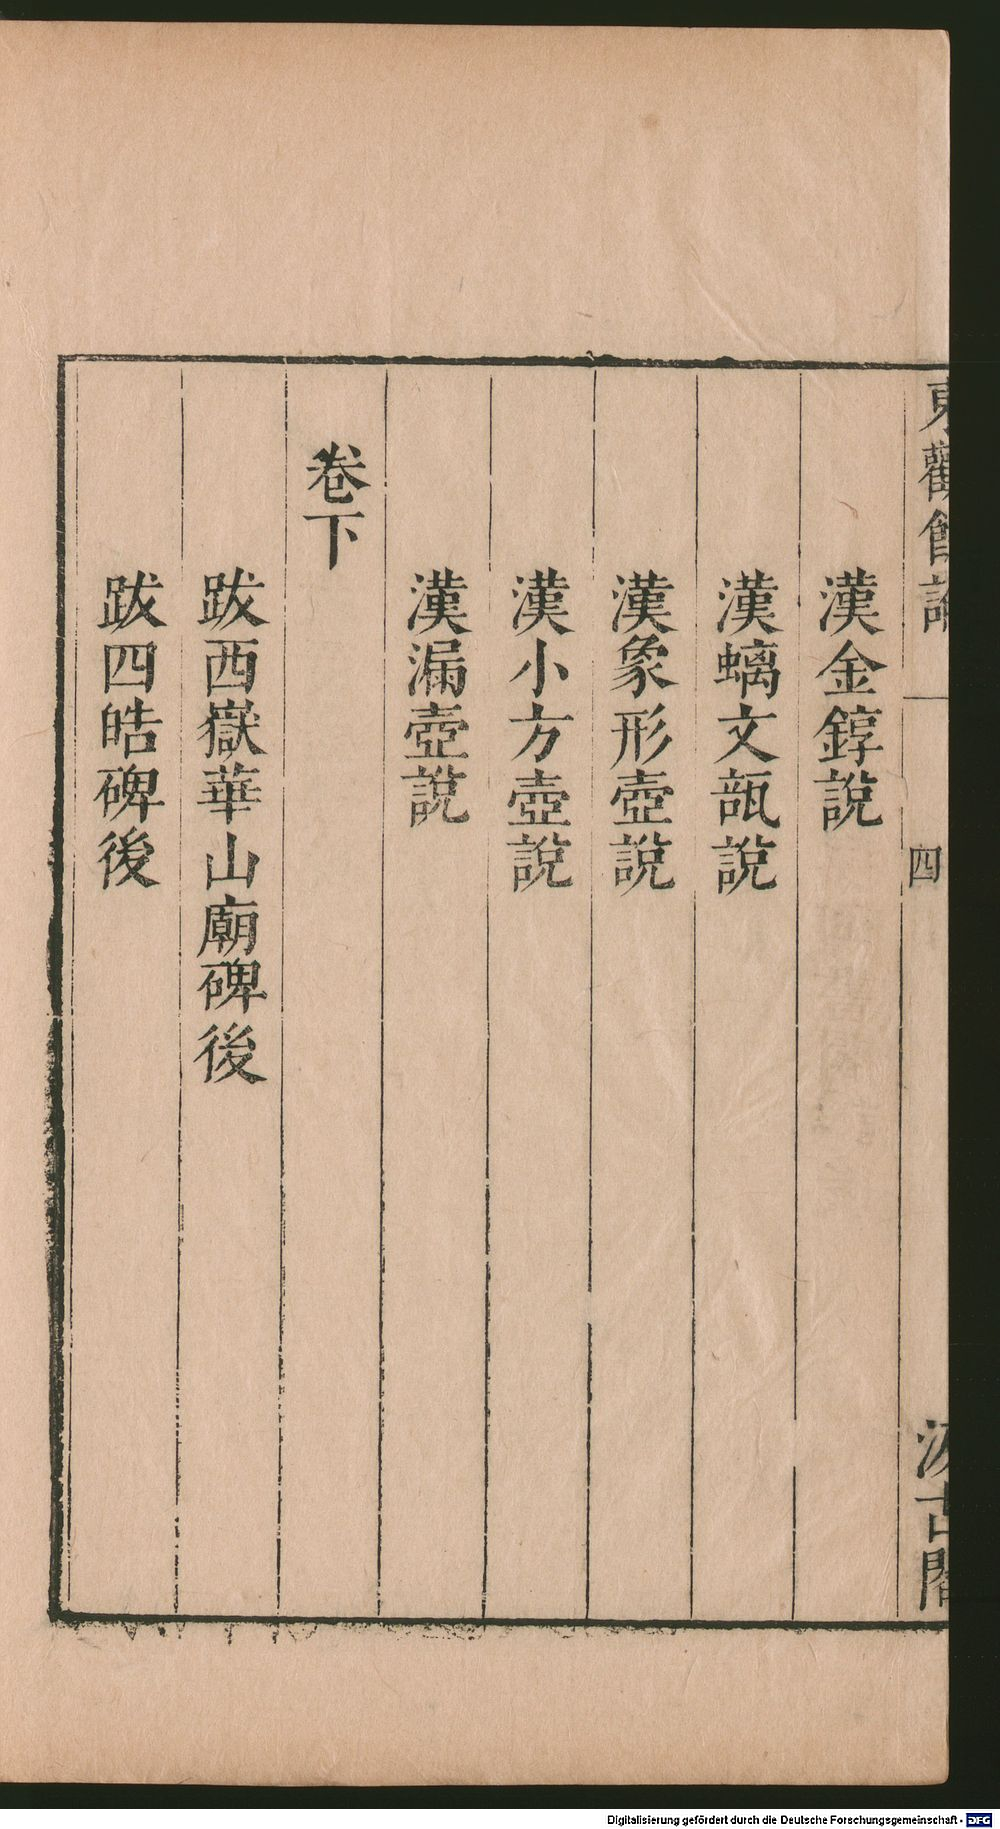 東觀餘論
四
汲古閣
漢金錞說
漢螭文瓿說
漢象形壺說
漢小方壺說
漢漏壺說
卷下
跋西嶽華山廟碑後
跋四皓碑後
Digitalisierung gefördert durch die Deutsche Forschungsgemeinschaft - DFG